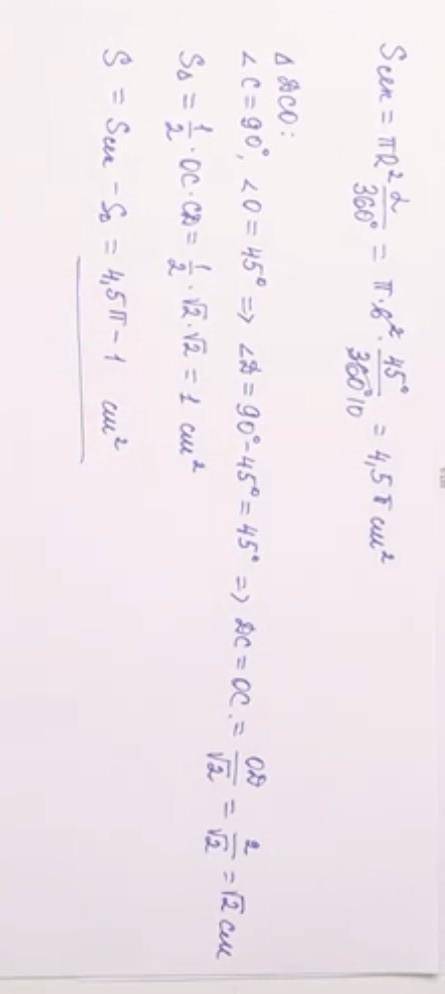 Sсек = πR² α/360° = π·6²·45°/360° = 4,5π см²
Δ DCO:
∠C = 90°, ∠O = 45° => ∠D = 90° - 45° = 45° => DC = OC = OD/√2 = 2/√2 = √2 см
SΔ = 1/2 · OC · CD = 1/2 · √2 · √2 = 1 см²
S = Sсек - SΔ = 4,5π - 1 см²